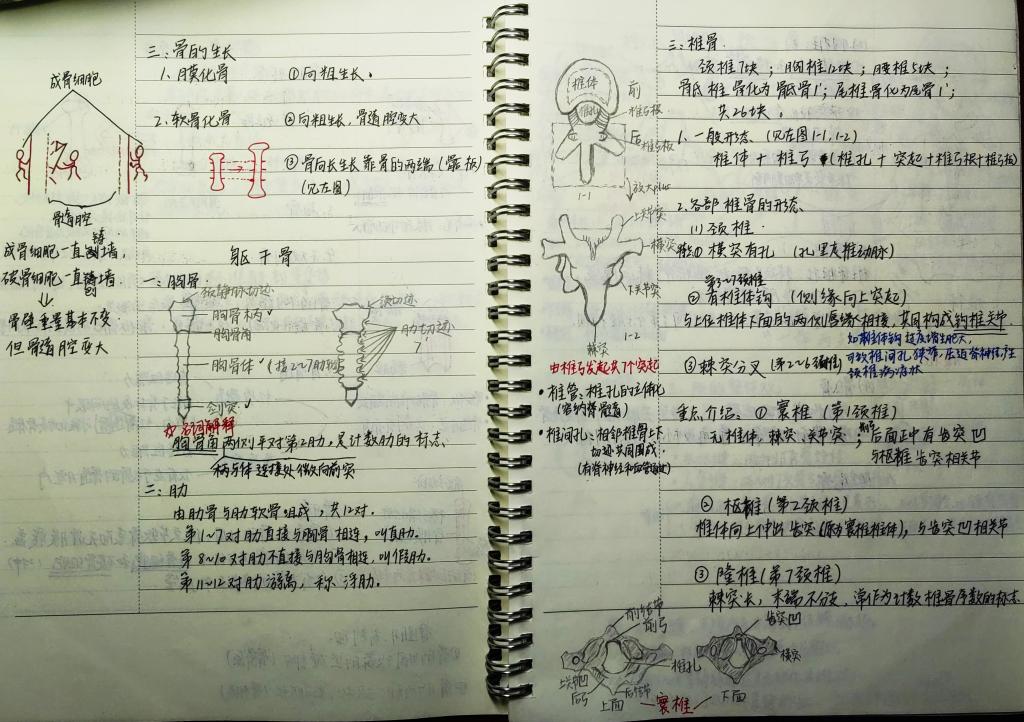 三、骨的生长
1、膜化骨 ①向粗生长。
成骨细胞
2、软骨化骨 ②向粗生长,骨髓腔变大
③骨向长生长靠骨的两端(骺板)
(见左图)
骨髓腔
成骨细胞一直砌土墙
破骨细胞一直
骨壁重量基本不变
但骨髓腔变大
躯干骨
一、胸骨
颈静脉切迹
胸骨柄
胸骨角
胸骨体 (接2~7肋软骨)
剑突
锁切迹
肋切迹
7
名词解释
胸骨角两侧平对第2肋,是计数肋的标志、
柄与体连接处微向前突
二、肋
由肋骨与肋软骨组成,共12对.
第1~7对肋直接与胸骨相连,叫真肋.
第8~10对肋不直接与胸骨相连,叫假肋.
第11~12对肋游离,称浮肋.
三、椎骨.
颈椎7块;胸椎12块;腰椎5块;
骶椎骨化为骶骨1';尾椎骨化为尾骨1';
共26块。
1、一般形态、(见左图1-1,1-2)
椎体+椎弓(椎孔+突起+椎弓根+椎弓板)
椎体
前
椎孔
椎弓根
后
椎弓板
1-1
放大plus
上关节突
横突
下关节突
棘突
1-2
由椎弓发起共7个突起
•椎管:椎孔的立体化
(容纳脊髓)
•椎间孔:相邻椎骨上下
切迹共同围成
(有脊神经和血管通过)
2、各部椎骨的形态、
(1)颈椎
①横突有孔 (孔里友椎动脉)
第3~7颈椎
②有椎体钩 (侧缘向上突起)
与上位椎体下面的两侧唇缘相接,共同构成钩椎关节
如椎体钩过度增生肥大,
可致椎间孔狭窄,压迫脊神经,产生
颈椎病症状
③棘突分叉(第2~6颈椎)
重点介绍:①寰椎(第1颈椎)
无椎体,棘突、关节突;后面正中有齿突凹
与枢椎齿突相关节
②枢椎(第2颈椎)
椎体向上伸出齿突(原为寰椎椎体),与齿突凹相关节
③隆椎(第7颈椎)
棘突长,末端不分支,常作为计数椎骨序数的标志
前结节
前弓
椎孔
上关节凹
后弓
后结节
上面
齿突凹
横突
下面
寰椎